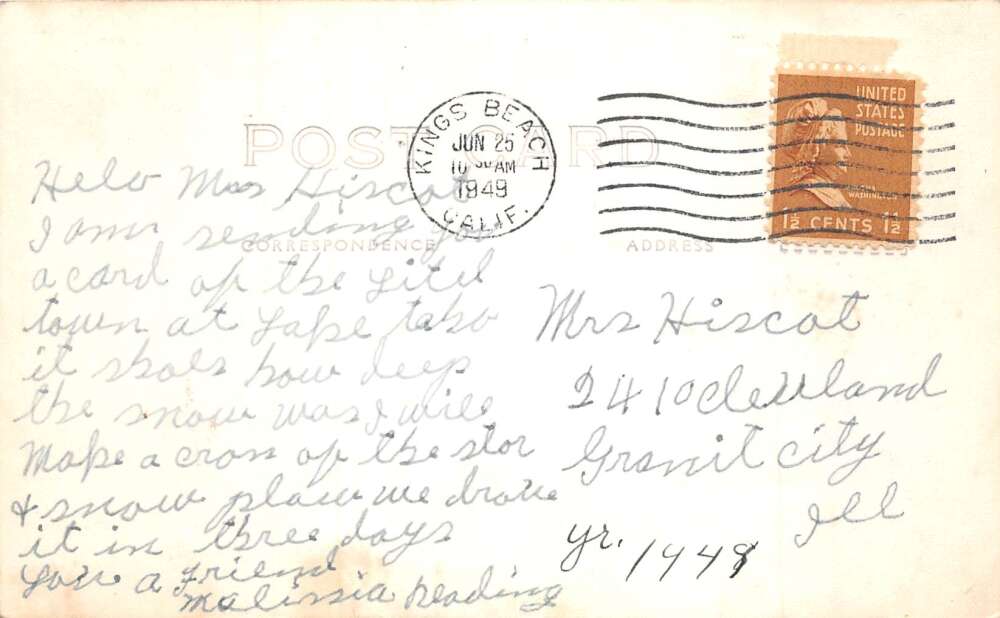 POST CARD
KINGS BEACH
JUN 25
10 30 AM
1949
CALIF.
UNITED
STATES
POSTAGE
WASHINGTON
1½ CENTS 1½
CORRESPONDENCE
ADDRESS
Helo Mrs Hiscot
I am sending you
a card of the Litel
town at Lake taho
it shoes how deep
the snow was I will
Make a cross of the stor
& snow plaw we drove
it in three days
Your a friend
Malissia Reading
Mrs Hiscot
2410 Cleveland
Granit City
Ill
yr. 1949